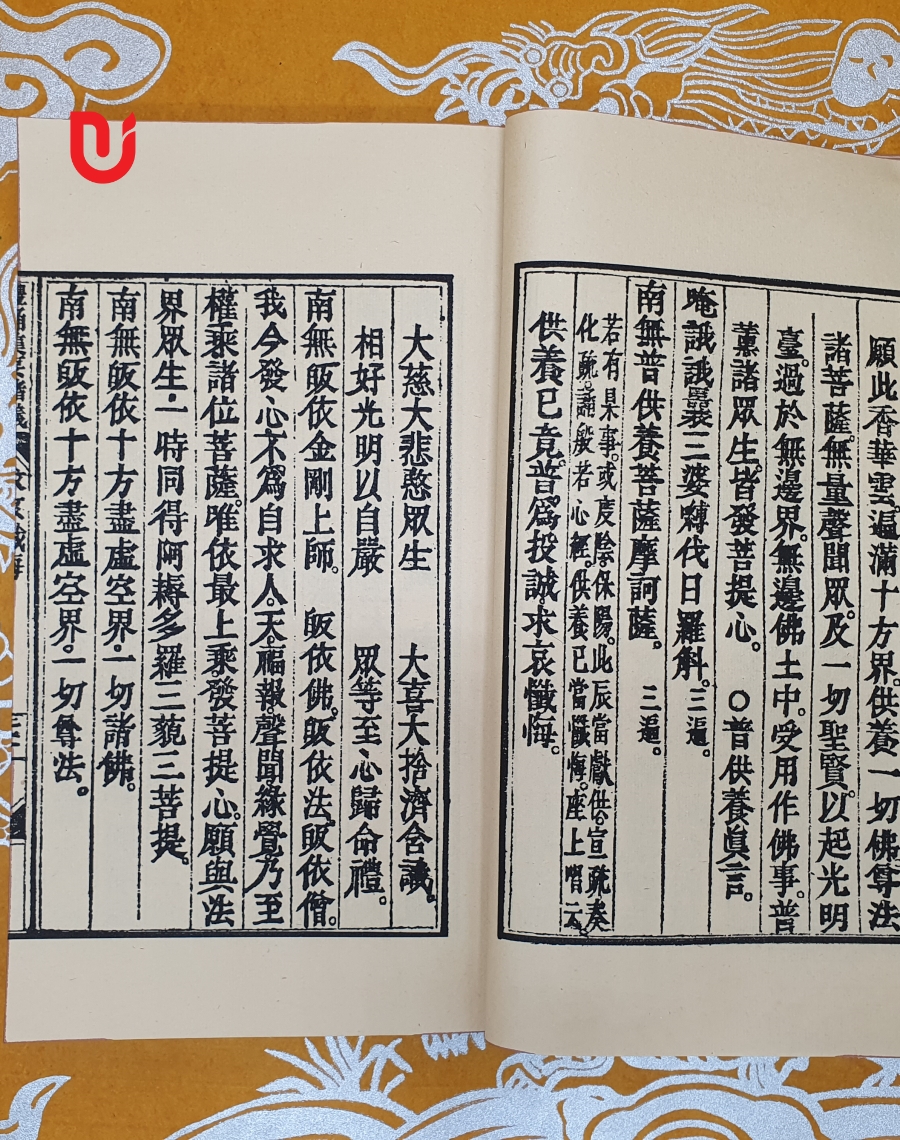 願此香華雲。遍滿十方界。供養一切佛尊法
諸菩薩。無量聲聞眾。及一切聖賢。以起光明
臺。過於無邊界。無邊佛土中。受用作佛事。普
薰諸眾生。皆發菩提心。○普供養眞言。
唵誐誐曩三婆嚩伐日羅斛。三遍。
南無普供養菩薩摩訶薩。三遍。
若有杲事。或度隂。保陽。此辰當獻供。宣疏奏
化疏。誦般若心經。供養已當懺悔。座上唱云
供養已竟。普爲投誠求哀懺悔。
大慈大悲愍眾生 大喜大捨濟含識。
相好光明以自嚴 眾等至心歸命禮。
南無皈依金剛上師。 皈依佛。皈依法。皈依僧。
我今發心不爲自求人。天。福報。聲聞緣覺乃至
權乘諸位菩薩。唯依最上乘。發菩提心。願與法
界眾生。一時同得阿耨多羅三藐三菩提。
南無皈依十方盡虛空界。一切諸佛。
南無皈依十方盡虛空界。一切尊法。